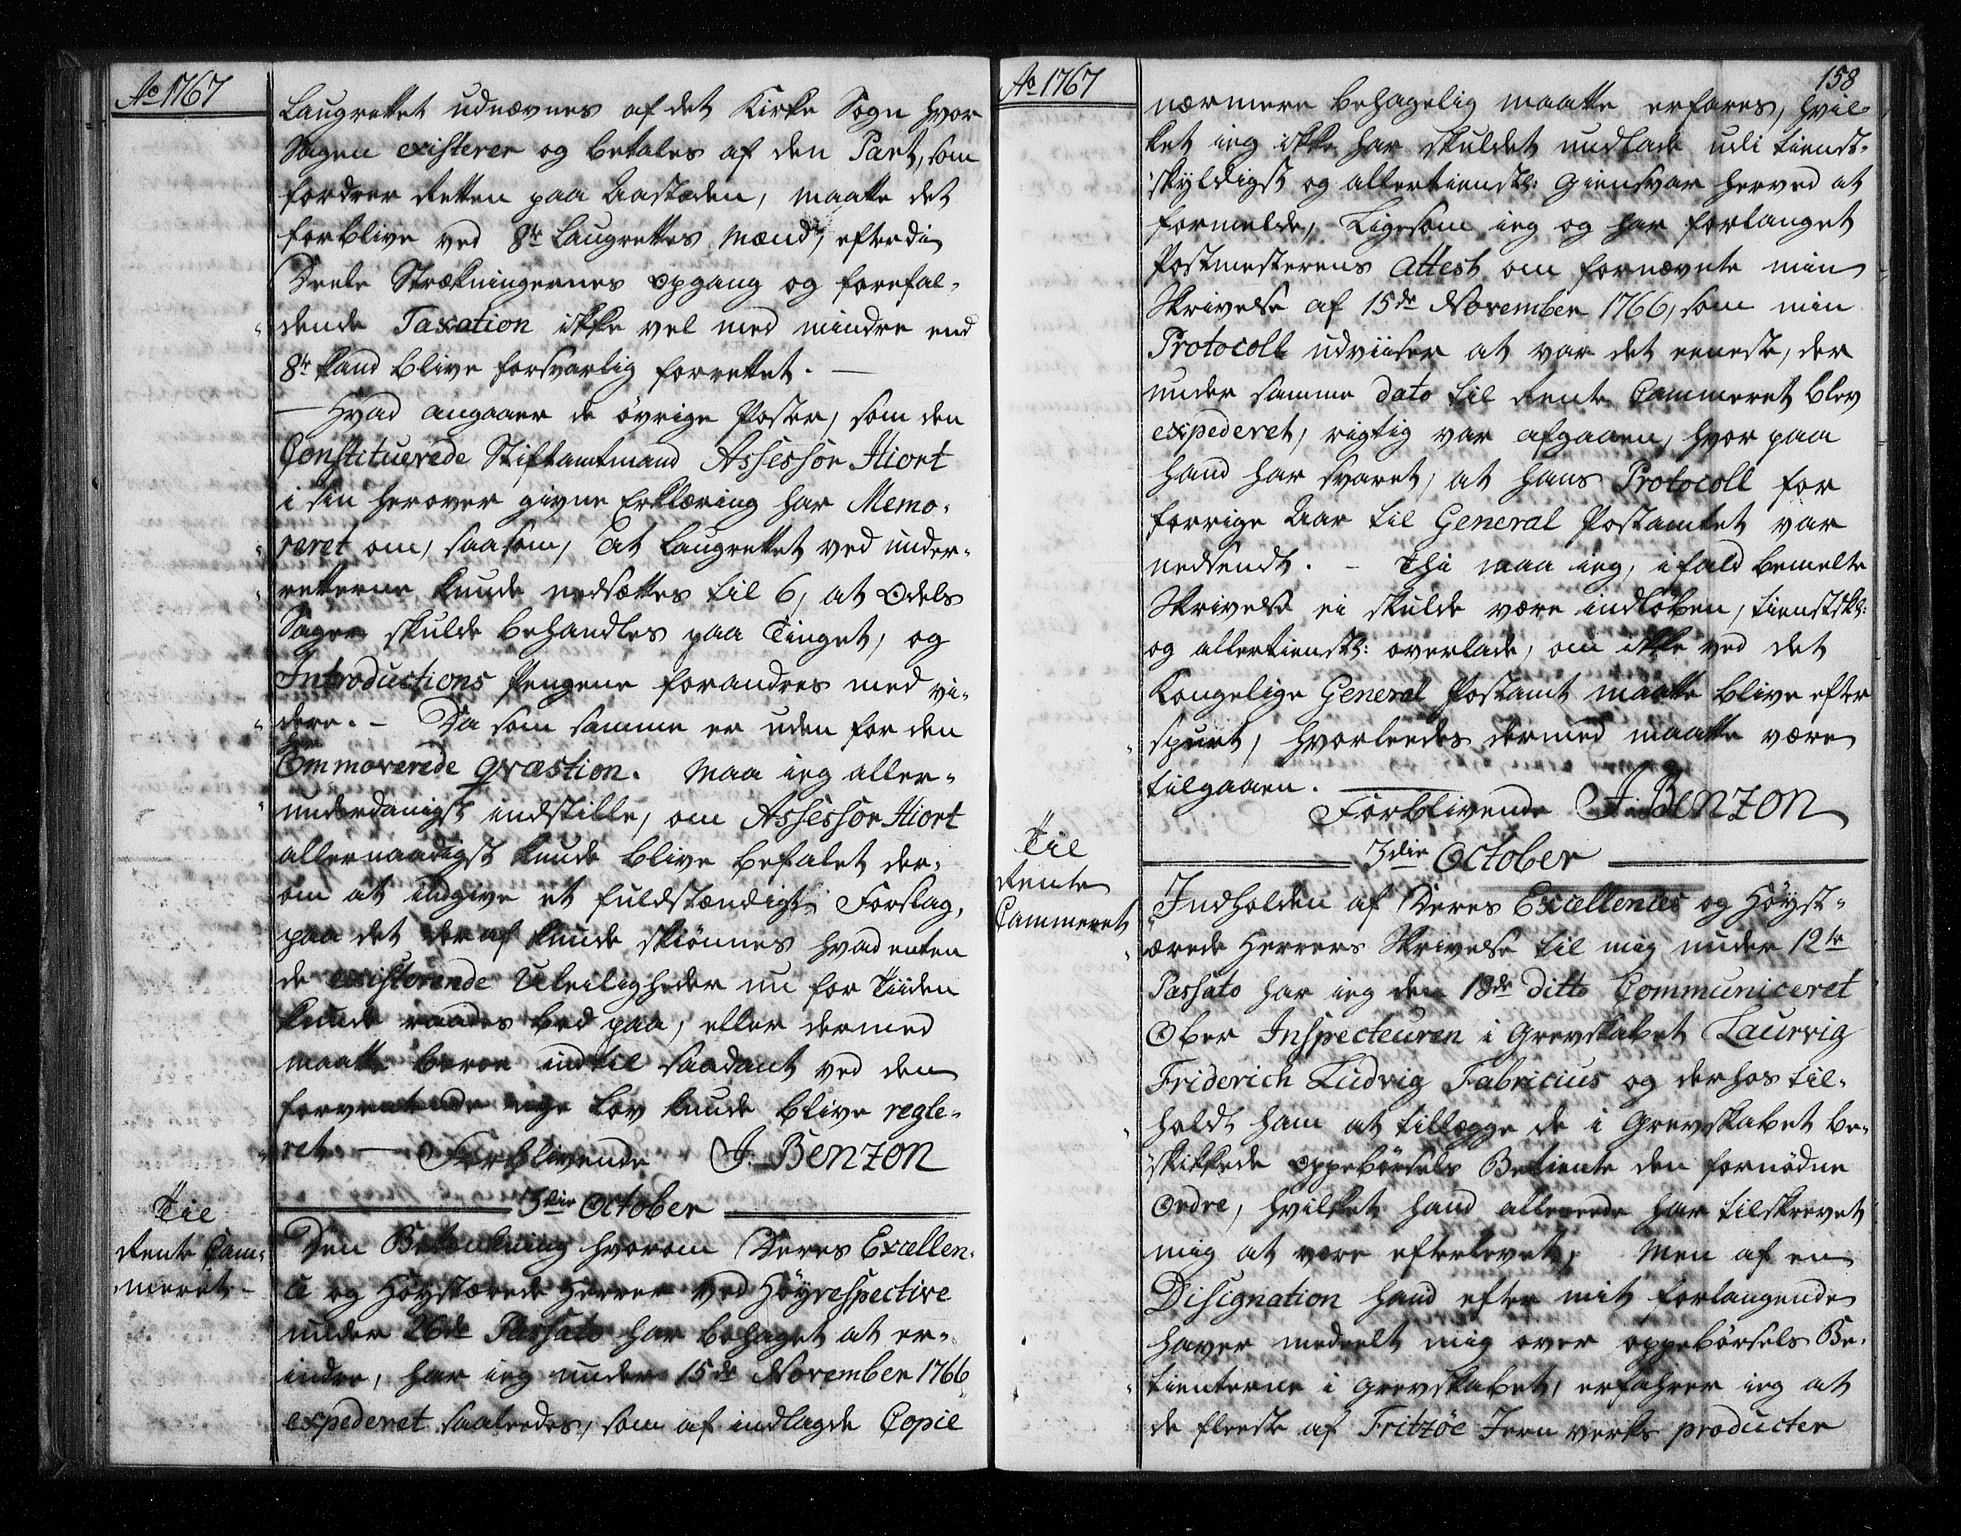 Ao 1767
Laugrettet udnævnes af det Kirke Sogn hvor
Sagen existerer og betales af den Part, som
fordrer Retten paa Aastæden, maatte det
forblive ved 8te Laugrettes Mænd, efterdi
Deele Strækningernes opgang og forefal-
dende Taxation ikke vel med mindre end
8te kand blive forsvarlig forrettet. —
— Hvad angaaer de øvrige Poster, som den
Constituerede Stiftamtmand Assessor Hiort
i sin herover givne Erklæring har Memo-
reret om, saasom, at Laugrettet ved under-
retterne kunde nedsættes til 6, at Odels
Sager skulde behandles paa Tinget, og
Introductions Pengene forandres med vi-
dere. – Da som samme er uden for den
Emmoverede qvæstion. Maa ieg aller-
underdanigst indstille, om Assessor Hiort
allernaadigst kunde blive befalet der-
om at indgive et fuldstændigt Forslag,
paa det deraf kunde skiønnes hvad enten
de existerende Uleiligheder nu for Tiiden
kunde raades bod paa, eller dermed
maatte beroe indtil saadant ved den
forventende nye Lov kunde blive regle-
ret. — Forblivende J. Benzon
3die October
Til
Rente Cam-
meret –
Den Betænkning hvorom Deres Excellen-
ce og Høystærede Herrer ved Høyrespective
under 26de Passato har behaget at er-
indre, har ieg under 15de November 1766
expederet saaleedes, som af indlagde Copie
Ao 1767
158
nærmere behagelig maatte erfares, hvil-
ket ieg ikke har skuldet undlade udi tienst-
skyldigst og allertienstl: Giensvar herved at
formelde, Ligesom ieg og har forlanget
Postmesterens Attest om fornævnte min
Skrivelse af 15de November 1766, som min
Protocoll udviiser at var det eeneste, der
under samme dato til Rente Cammeret blev
expederet, rigtig var afgaaen, hvor paa
hand har svaret, at hans Protocoll for
forrige Aar til General Postamtet var
nedsendt. – Thi maa ieg, ifald bemelte
Skrivelse ei skulde være indløben, tienstskl:
og allertienstl: overlade, om ikke ved det
Kongelige General Postamt maatte blive efter
spurt, hvorleedes dermed maatte være
tilgaaen. Forblivende J. Benzon
3die October
Til
Rente
Cammeret
Indholden af Deres Excellences og Høyst-
ærede Herrers Skrivelse til mig under 12te
Passato har ieg den 18de ditto Communiceret
Ober Inspecteuren i Grevskabet Laurvig
Friderich Ludvig Fabricius og derhos til-
holdt ham at tillægge de i Grevskabet be-
skikkede oppebørsels Betiente den fornødne
Ordre, hvilket hand allerede har tilskrevet
mig at være efterlevet; Men af en
Disignation hand efter mit forlangende
haver meddelt mig over oppebørsels Be-
tienterne i Grevskabet, erfahrer ieg at
de fleeste af Fritzøe Jern værks producter